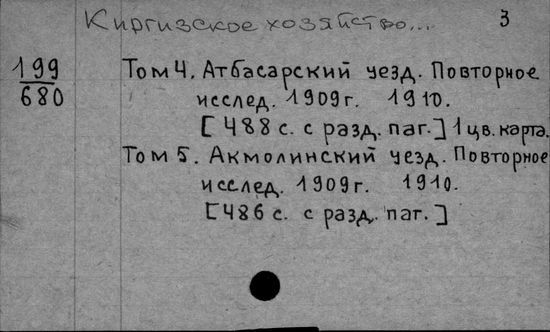 Киргизское хозяйство... 3
199
680
Том 4. Атбасарский уезд. Повторное
исслед. 1909 г. 1910.
[488 с. с разд. паг.] 1 цв. карта.
Том 5. Акмолинский уезд. Повторное
исслед. 1909 г. 1910.
[486 с. с разд. паг.]